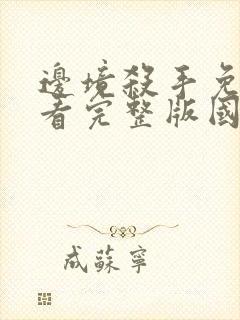 邊境殺手免
看完整版國
成蘇寧